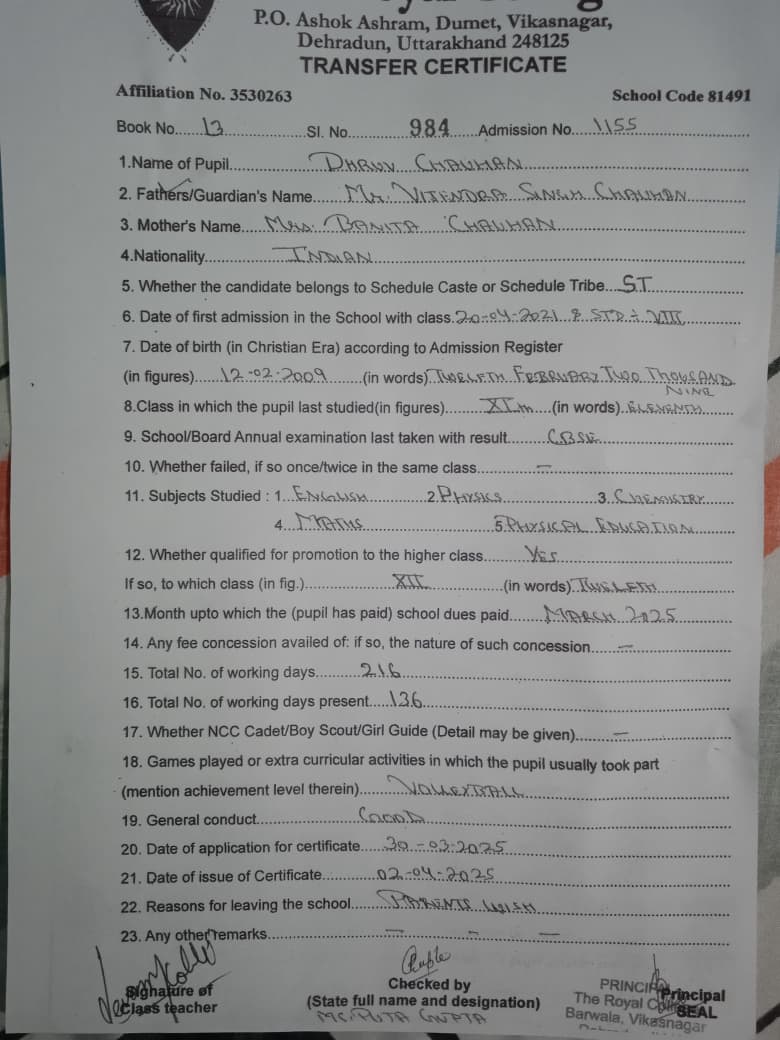 P.O. Ashok Ashram, Dumet, Vikasnagar,
Dehradun, Uttarakhand 248125
TRANSFER CERTIFICATE
Affiliation No. 3530263 School Code 81491
Book No. 13 Sl. No. 984 Admission No. 1155
1.Name of Pupil DHRUV CHAUHAN
2. Fathers/Guardian's Name Mr. VIJENDRA SINGH CHAUHAN
3. Mother's Name Mrs. BANITA CHAUHAN
4.Nationality INDIAN
5. Whether the candidate belongs to Schedule Caste or Schedule Tribe S.T
6. Date of first admission in the School with class 20-04-2021 & STD ÷ VIII
7. Date of birth (in Christian Era) according to Admission Register
(in figures) 12-02-2009 (in words) TWELFTH FEBRUARY TWO THOUSAND
NINE
8.Class in which the pupil last studied(in figures) XIth (in words) ELEVENTH
9. School/Board Annual examination last taken with result CBSE
10. Whether failed, if so once/twice in the same class —
11. Subjects Studied : 1. ENGLISH 2. PHYSICS 3. CHEMISTRY
4. MATHS 5. PHYSICAL EDUCATION
12. Whether qualified for promotion to the higher class YES
If so, to which class (in fig.) XII (in words) TWELFTH
13.Month upto which the (pupil has paid) school dues paid MARCH 2025
14. Any fee concession availed of: if so, the nature of such concession —
15. Total No. of working days 216
16. Total No. of working days present 136
17. Whether NCC Cadet/Boy Scout/Girl Guide (Detail may be given) —
18. Games played or extra curricular activities in which the pupil usually took part
(mention achievement level therein) VOLLEYBALL
19. General conduct GOOD
20. Date of application for certificate 30-03-2025
21. Date of issue of Certificate 02-04-2025
22. Reasons for leaving the school PARENTS WISH
23. Any other remarks — — —
Signature of Checked by PRINCIPAL Principal
Class teacher (State full name and designation) The Royal College SEAL
GUPTA Barwala, Vikasnagar